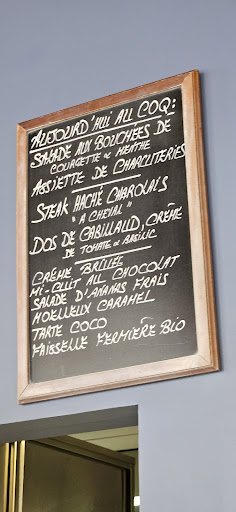 AUJOURD'HUI AU COQ:
SALADE AUX BOUCHÉES DE
COURGETTE & MENTHE
ASSIETTE DE CHARCUTERIES
STEAK HACHÉ CHAROLAIS
"A CHEVAL"
DOS DE CABILLAUD, CRÈME
DE TOMATE & BASILIC
CRÈME BRÛLÉE
MI-CUIT AU CHOCOLAT
SALADE D'ANANAS FRAIS
MOELLEUX CARAMEL
TARTE COCO
FAISSELLE FERMIÈRE BIO